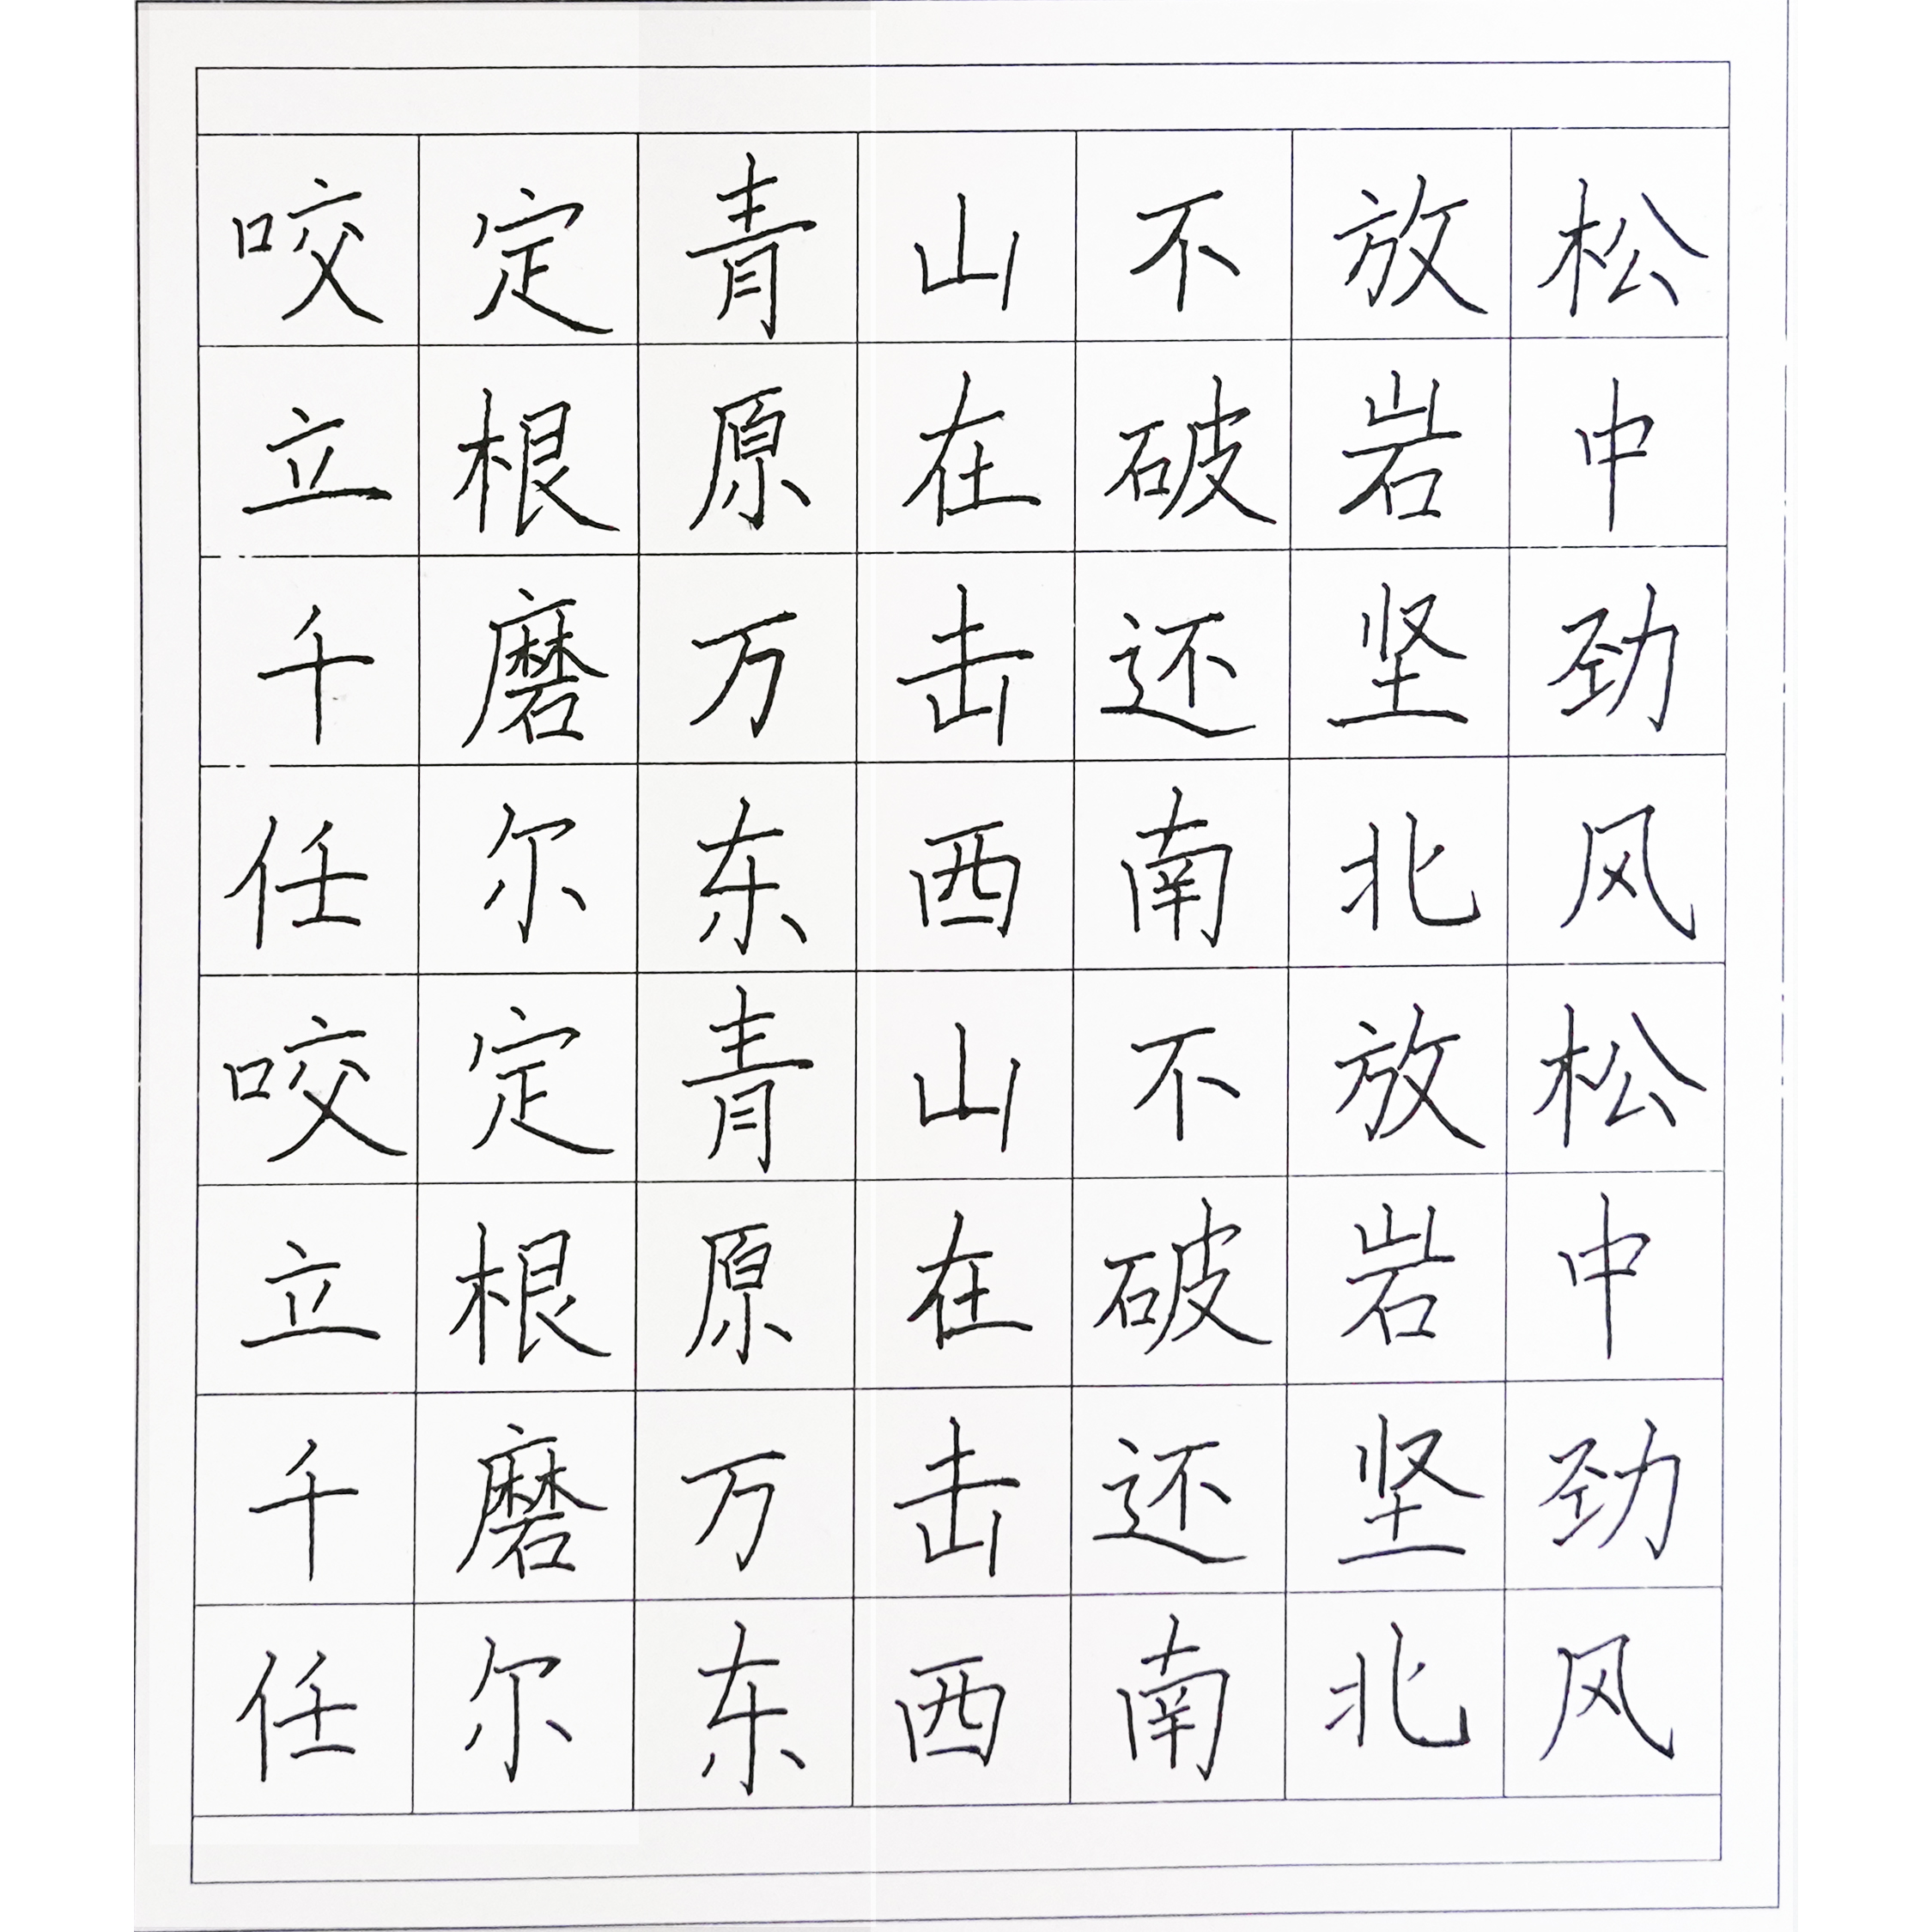 咬定青山不放松
立根原在破岩中
千磨万击还坚劲
任尔东西南北风
咬定青山不放松
立根原在破岩中
千磨万击还坚劲
任尔东西南北风